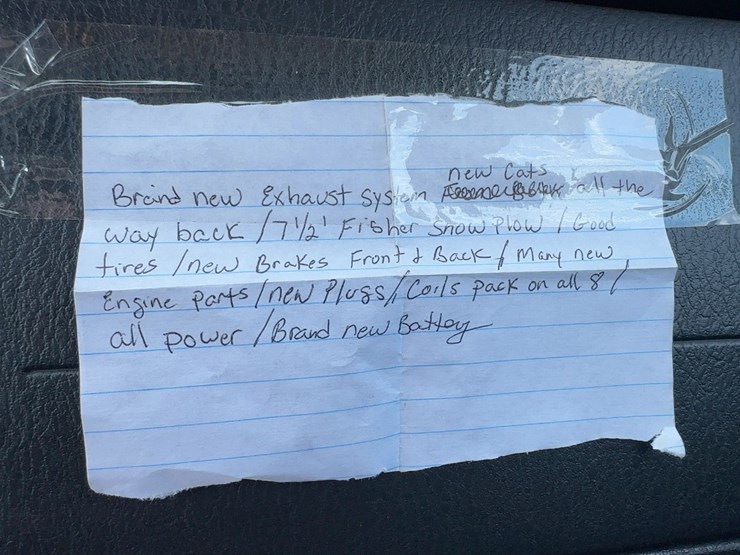 new Cats
Brand new Exhaust System all the
way back / 7 1/2' Fisher Snow Plow / Good
tires / new Brakes Front & Back / Many new
Engine parts / new Plugs / Coils pack on all 8 /
all power / Brand new Battey